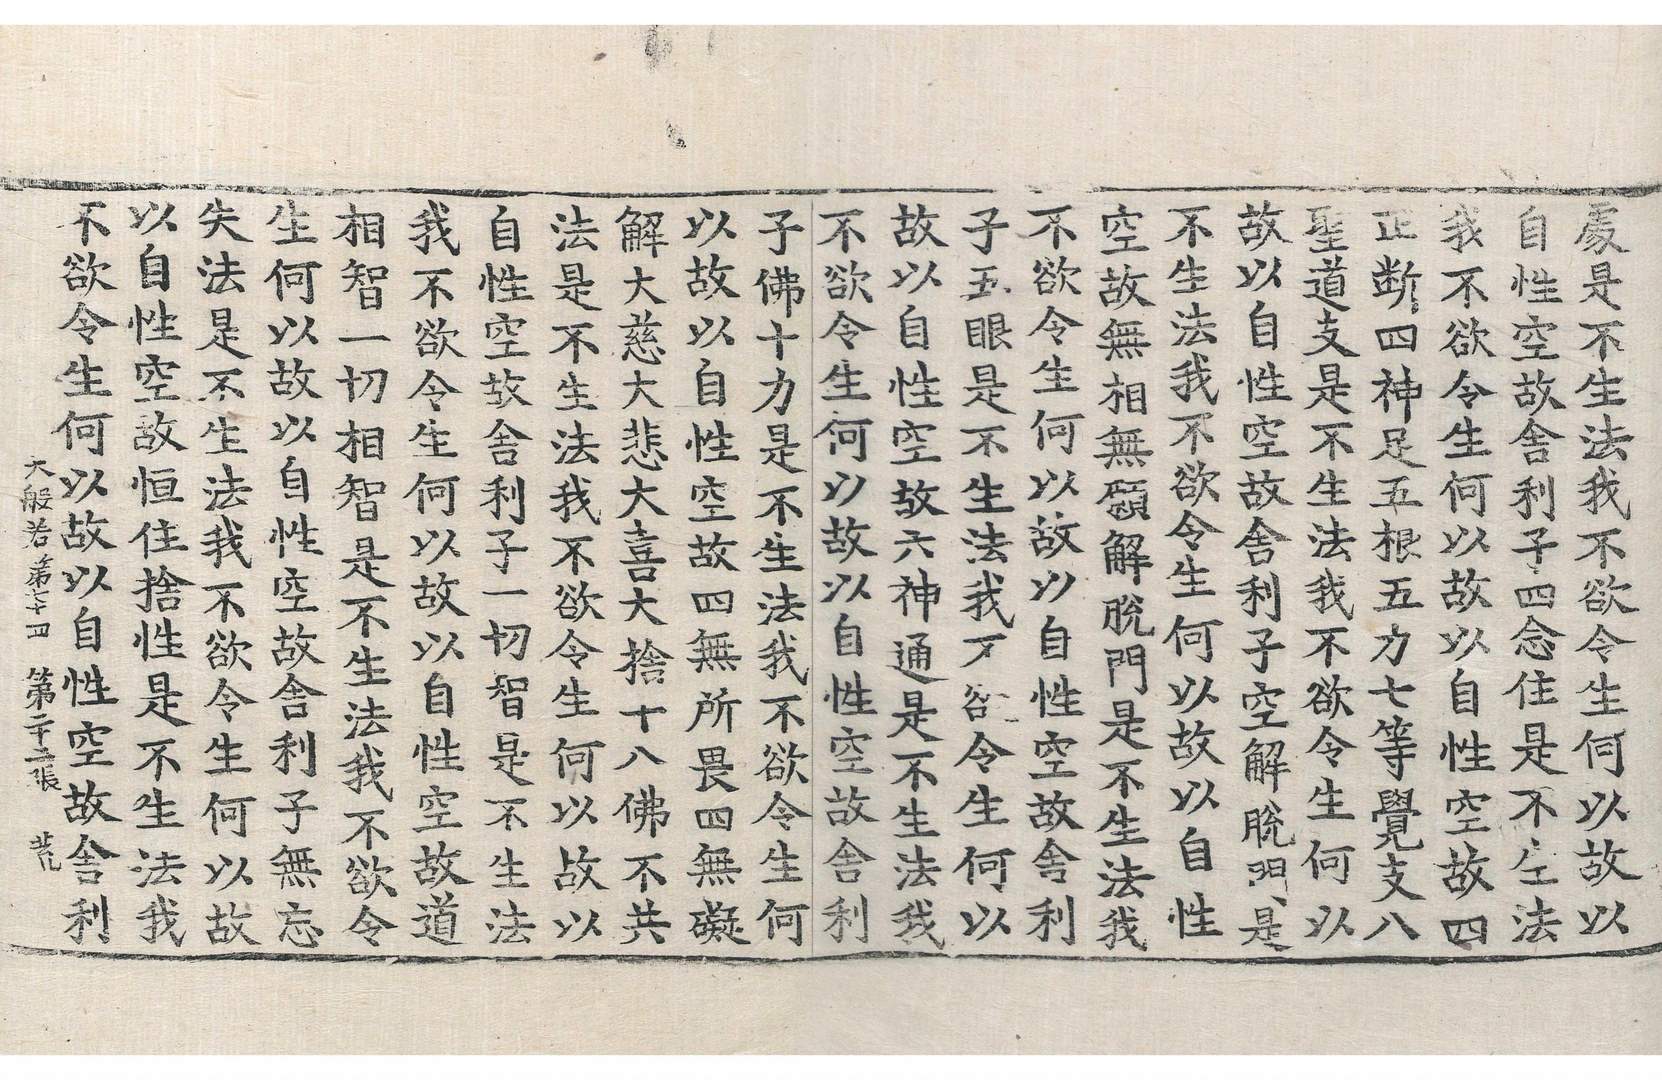 處是不生法我不欲令生何以故以
自性空故舍利子四念住是不生法
我不欲令生何以故以自性空故四
正断四神足五根五力七等覺支八
聖道支是不生法我不欲令生何以
故以自性空故舍利子空解脫門是
不生法我不欲令生何以故以自性
空故無相無願解脫門是不生法我
不欲令生何以故以自性空故舍利
子五眼是不生法我不欲令生何以
故以自性空故六神通是不生法我
不欲令生何以故以自性空故舍利
子佛十力是不生法我不欲令生何
以故以自性空故四無所畏四無礙
解大慈大悲大喜大捨十八佛不共
法是不生法我不欲令生何以故以
自性空故舍利子一切智是不生法
我不欲令生何以故以自性空故道
相智一切相智是不生法我不欲令
生何以故以自性空故舍利子無忘
失法是不生法我不欲令生何以故
以自性空故恒住捨性是不生法我
不欲令生何以故以自性空故舍利
大般若第七十四 第二十二張 荒